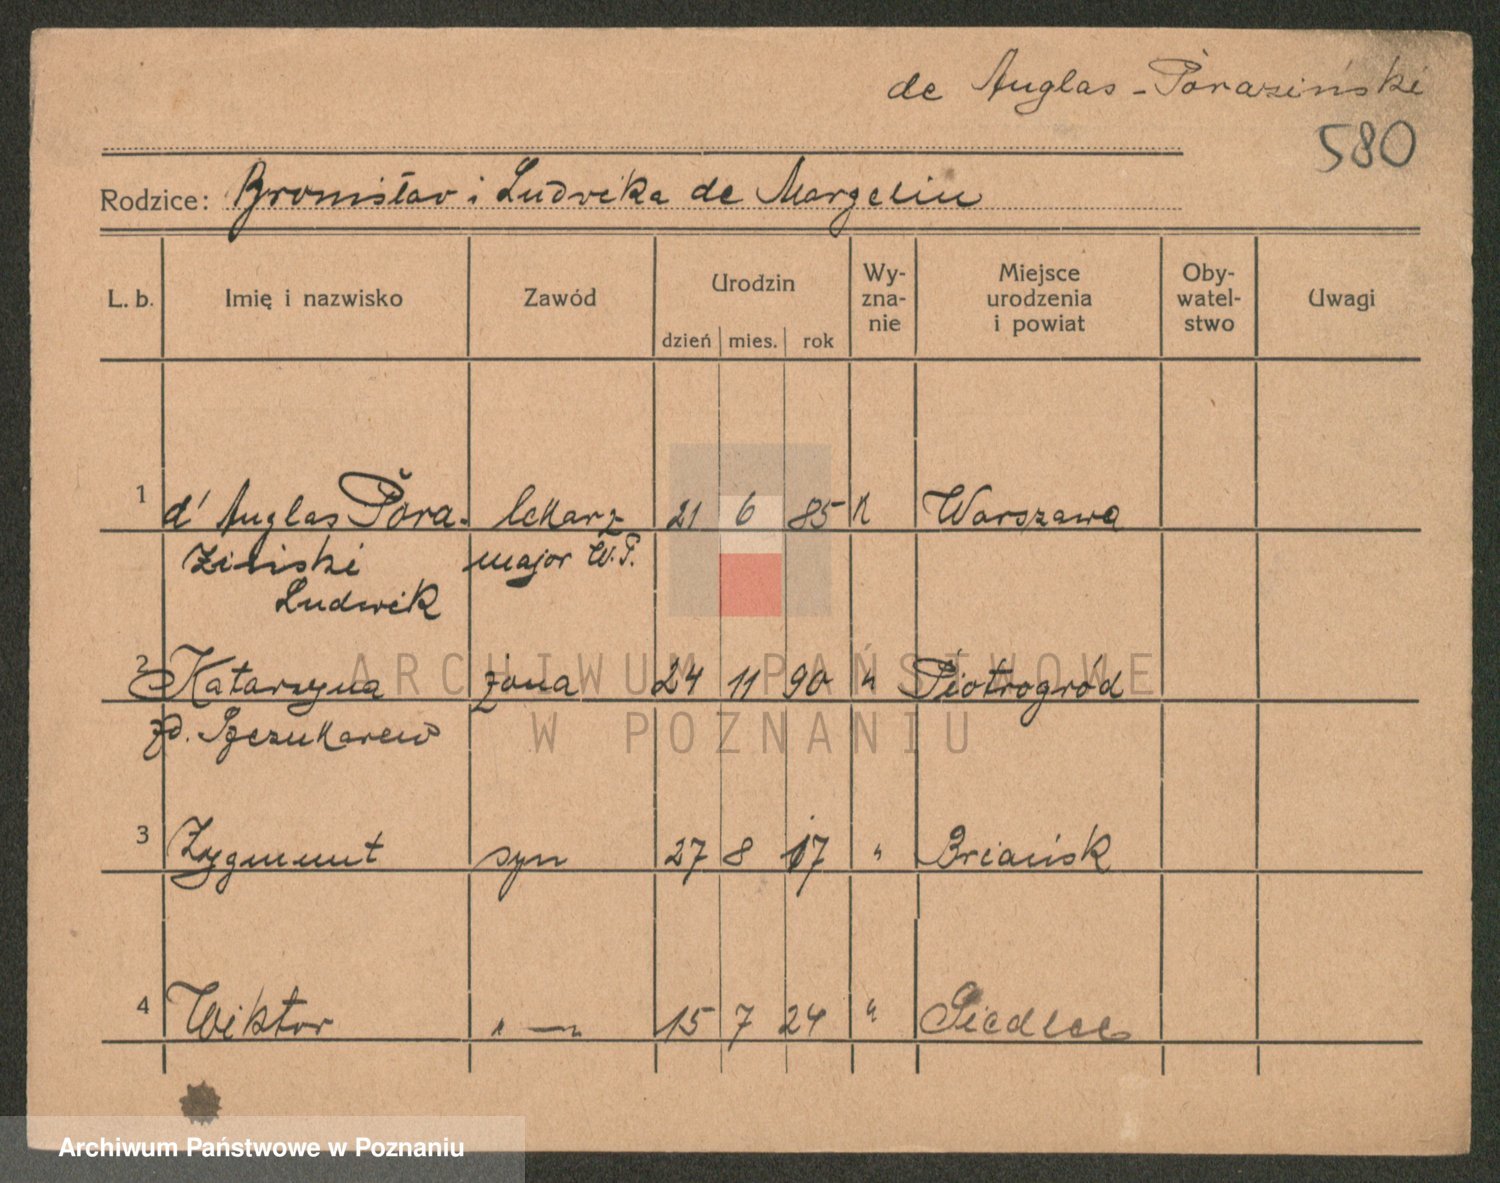 de Auglas - Porasiński
580
Rodzice: Bronisław i Ludwika de Margelin
L. b. Imię i nazwisko Zawód Urodzin dzień mies. rok Wy-zna-nie Miejsce urodzenia i powiat Oby-watel-stwo Uwagi
1 d' Auglas Pora- lekarz 21 6 85 K Warszawa
ziński major W.P.
Ludwik
2 Katarzyna żona 24 11 90 " Piotrogród
zd. Szczukarew
3 Zygmunt syn 27 8 17 " Briańsk
4 Wiktor " — 15 7 24 " Siedlce
ARCHIWUM PAŃSTWOWE
W POZNANIU
Archiwum Państwowe w Poznaniu